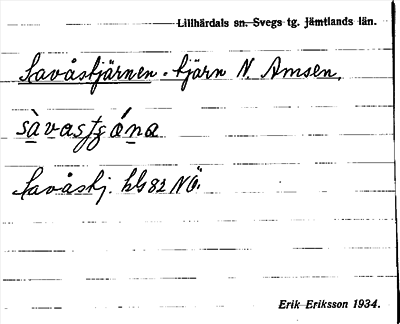 Lillhärdals sn. Svegs tg. Jämtlands län.
Savåstjärnen. tjärn N. Amsen.
sàvastǥóna
Savåstj. kbs 82 NÖ.
Erik Eriksson 1934.